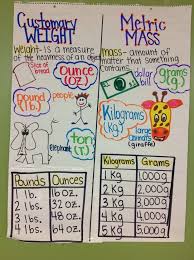 Customary
WEIGHT
weight- is a measure
of the heaviness of an object
slice of
bread
ounce
(oz)
pound
(lb)
people
Elephant
ton
(T)
Pounds Ounces
1 lb. 16 oz.
2 lb. 32 oz.
3 lb. 48 oz.
4 lb. 64 oz.
Metric
MASS
mass- amount of
matter that something
contains
dollar
bill
grams
(g)
Kilograms
(kg)
large
animals
(giraffe)
Kilograms Grams
1 kg 1,000g
2 kg 2,000g
3 kg 3,000g
4 kg 4,000g
5 kg 5,000g